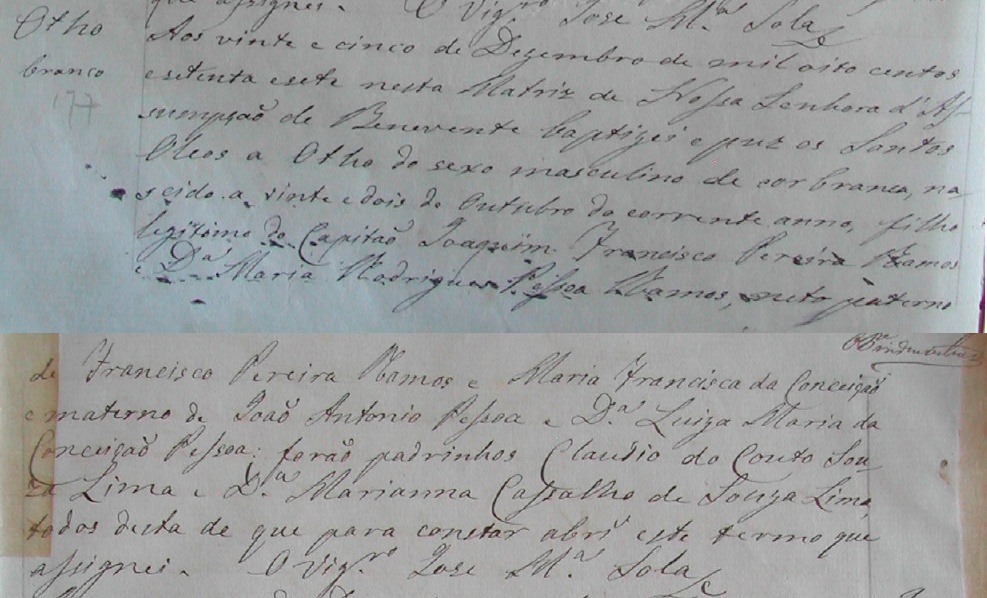 que assignei. O Vig.ro Jose M.a Sola
Otho
branco
177
Aos vinte e cinco de Dezembro de mil oito centos
e setenta e sete nesta Matriz de Nossa Senhora d'As-
sumpção de Benevente baptizei e puz os Santos
Oleos a Otho do sexo masculino de cor branca, na-
scido a vinte e dois de Outubro do corrente anno, filho
legitimo do Capitão Joaquim Francisco Pereira Ramos
e D.a Maria Rodrigues Pessoa Ramos, neto paterno
de Francisco Pereira Ramos e Maria Francisca da Conceição
e materno de João Antonio Pessoa e D.a Luiza Maria da
Conceição Pessoa: forão padrinhos Claudio do Couto Sou-
za Lima e D.a Marianna Carvalho de Souza Lima,
todos desta de que para constar abri este termo que
assignei. O Vig.ro Jose M.a Sola